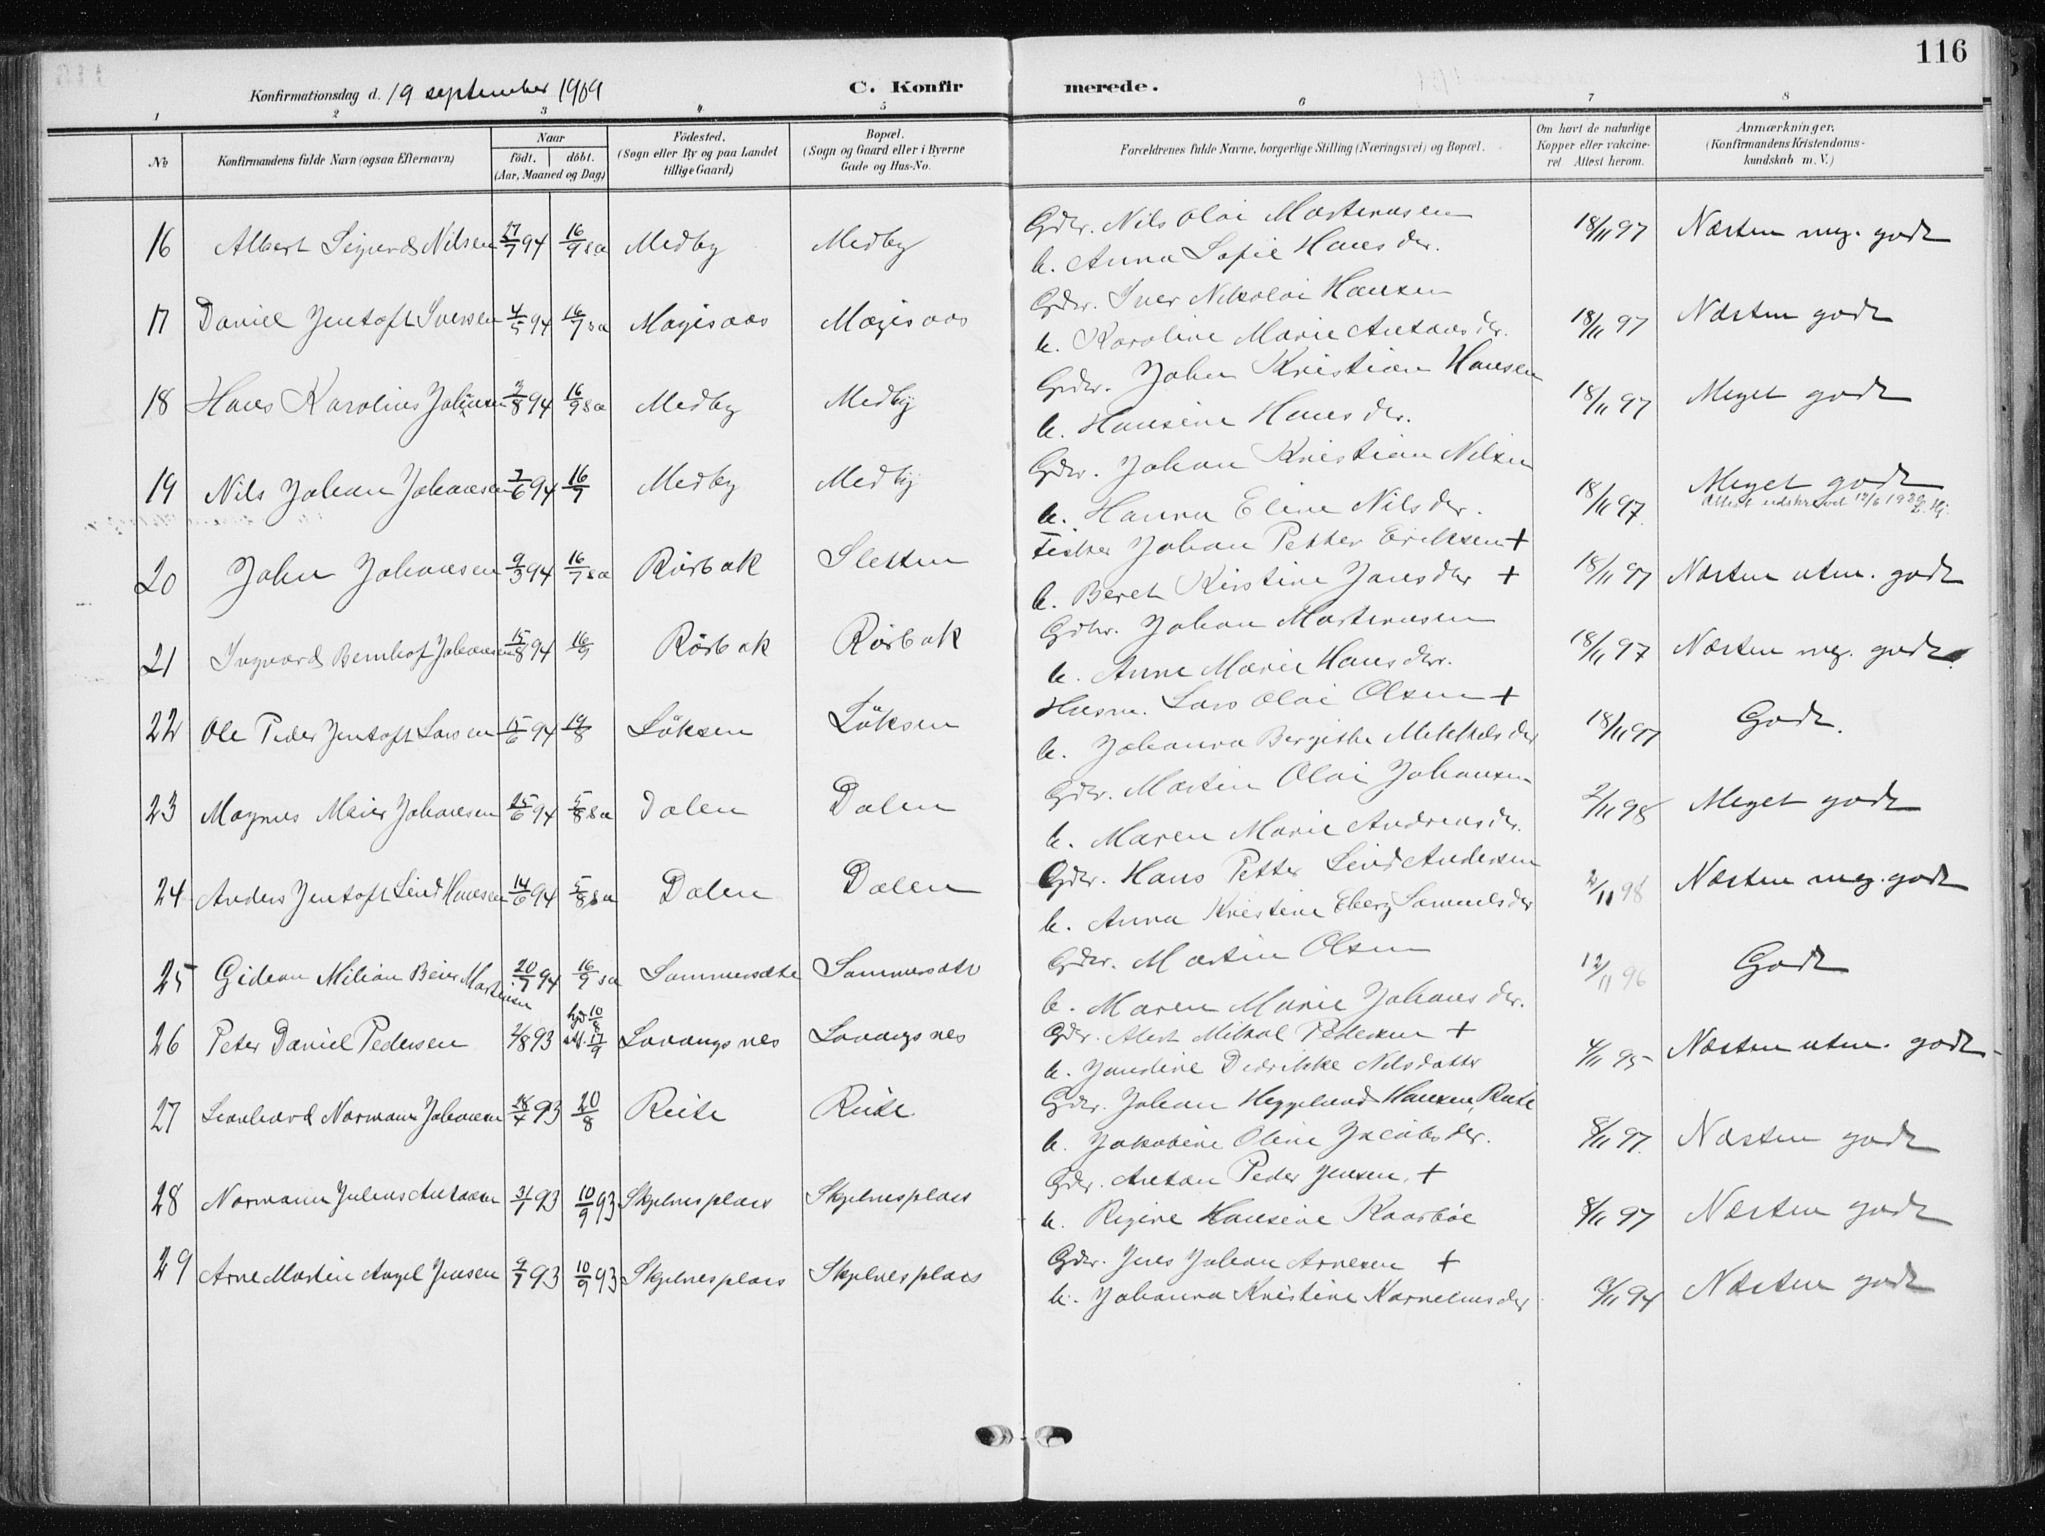 116
Konfirmationsdag d. 19 september 1909
C. Konfirmerede.
1 2 3 4 5 6 7 8
No
Konfirmandens fulde Navn (ogsaa Efternavn)
Naar
födt. döbt.
(Aar, Maaned og Dag)
Födested.
(Sogn eller By og paa Landet
tillige Gaard)
Bopæl.
(Sogn og Gaard eller i Byerne
Gade og Hus-No.
Forældrenes fulde Navne, borgerlige Stilling (Næringsvei) og Bopæl.
Om havt de naturlige
Kopper eller vakcine-
ret Attest herom.
Anmærkninger.
(Konfirmandens Kristendoms-
kundskab m. V.)
16 Albert Sigurd Nilsen 27/7 94 16/9 s a Medby Medby Gdbr. Nils Olai Martinusen 18/11 97 Næsten meg. godt
h. Anna Sofie Hansdtr.
17 Daniel Jentoft Iversen 4/5 94 16/7 s a Møgisaas Møgisaas Gdbr. Iver Nikolai Hansen 18/11 97 Næsten godt
h. Karoline Marie Antonsdtr.
18 Hans Karolius Johnsen 2/8 94 16/9 s a Medby Medby Gdbr. John Kristian Hansen 18/11 97 Meget godt
h. Hansine Hansdtr.
19 Nils Johan Johansen 2/6 94 16/9 Medby Medby Gdbr. Johan Kristian Nilsen 18/11 97 Meget godt
h. Hanna Eline Nilsdtr. Attest udskrevet 12/6 1932
20 John Johansen 9/3 94 16/7 s a Rörbak Sletten Fisker Johan Petter Eriksen + 18/11 97 Næsten utm. godt
h. Beret Kirstine Jonsdtr +
21 Ingvard Bernhof Johansen 15/8 94 16/9 Rörbak Rörbak Gdbr. Johan Martinusen 18/11 97 Næsten meg. godt
h. Anne Marie Hansdtr.
22 Ole Peder Jentoft Larsen 15/6 94 19/8 Löksen Löksen Husm. Lars Olai Olsen + 18/11 97 Godt.
h. Johanna Bergithe Mikkelsdtr
23 Magnus Meier Johansen 25/6 94 5/8 s a Dalen Dalen Gdbr. Martin Olai Johansen 2/11 98 Meget godt
h. Maren Marie Andreasdtr.
24 Anders Jentoft Lind Hansen 14/6 94 5/8 s a Dalen Dalen Gdbr. Hans Petter Lind Andersen 2/11 98 Næsten meg. godt
h. Anna Kristine Eberg Samuelsdtr
25 Gideon Milian Beier Martinsen 20/7 94 16/9 s a Sommersæte Sommersæte Gdbr. Martin Olsen 12/11 96 Godt
h. Maren Marie Johansdtr.
26 Peter Daniel Pedersen 2/8 93 hjd 10/8 st. 17/9 Lavangsnes Lavangsnes Gdbr. Albert Mikal Pedersen + 4/11 95 Næsten utm. godt
h. Jensine Didrikke Nilsdatter
27 Leonhard Normann Johansen 18/4 93 20/8 Reite Reite Gdbr. Johan Heggelund Hansen, Reite 8/11 97 Næsten godt
h. Jakobine Oline Jacobsdtr.
28 Normann Julius Antonsen 31/1 93 10/9 93 Skjelnesplads Skjelnesplads Gdbr. Anton Peder Jensen. + 8/11 97 Næsten godt
h. Regine Hansine Kaarbøe
29 Arne Martin Angel Jensen 9/7 93 10/9 93 Skjelnesplads Skjelnesplads Gdbr. Jens Johan Arnesen + 9/11 94 Næsten godt
h. Johanna Kristine Korneliusdtr